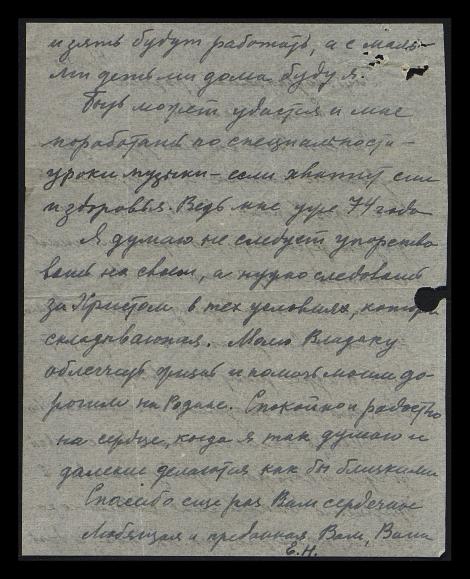 и зять будут работать, а с малы-
ми детьми дома буду я.
Быть может удастся и мне
поработать по специальности –
уроки музыки – если хватит сил
и здоровья. Ведь мне уже 74 года
Я думаю не следует упорство
вать на своем, а нужно следовать
за Христом в тех условиях, которые
складываются. Молю Владыку
облегчить жизнь и помочь моим до-
рогим на Родине. Спокойно и радостно
на сердце, когда я так думаю и
далекие делаются как бы близкими
Спасибо еще раз Вам сердечное
Любящая и преданная Вам, Ваша
Е.Н.